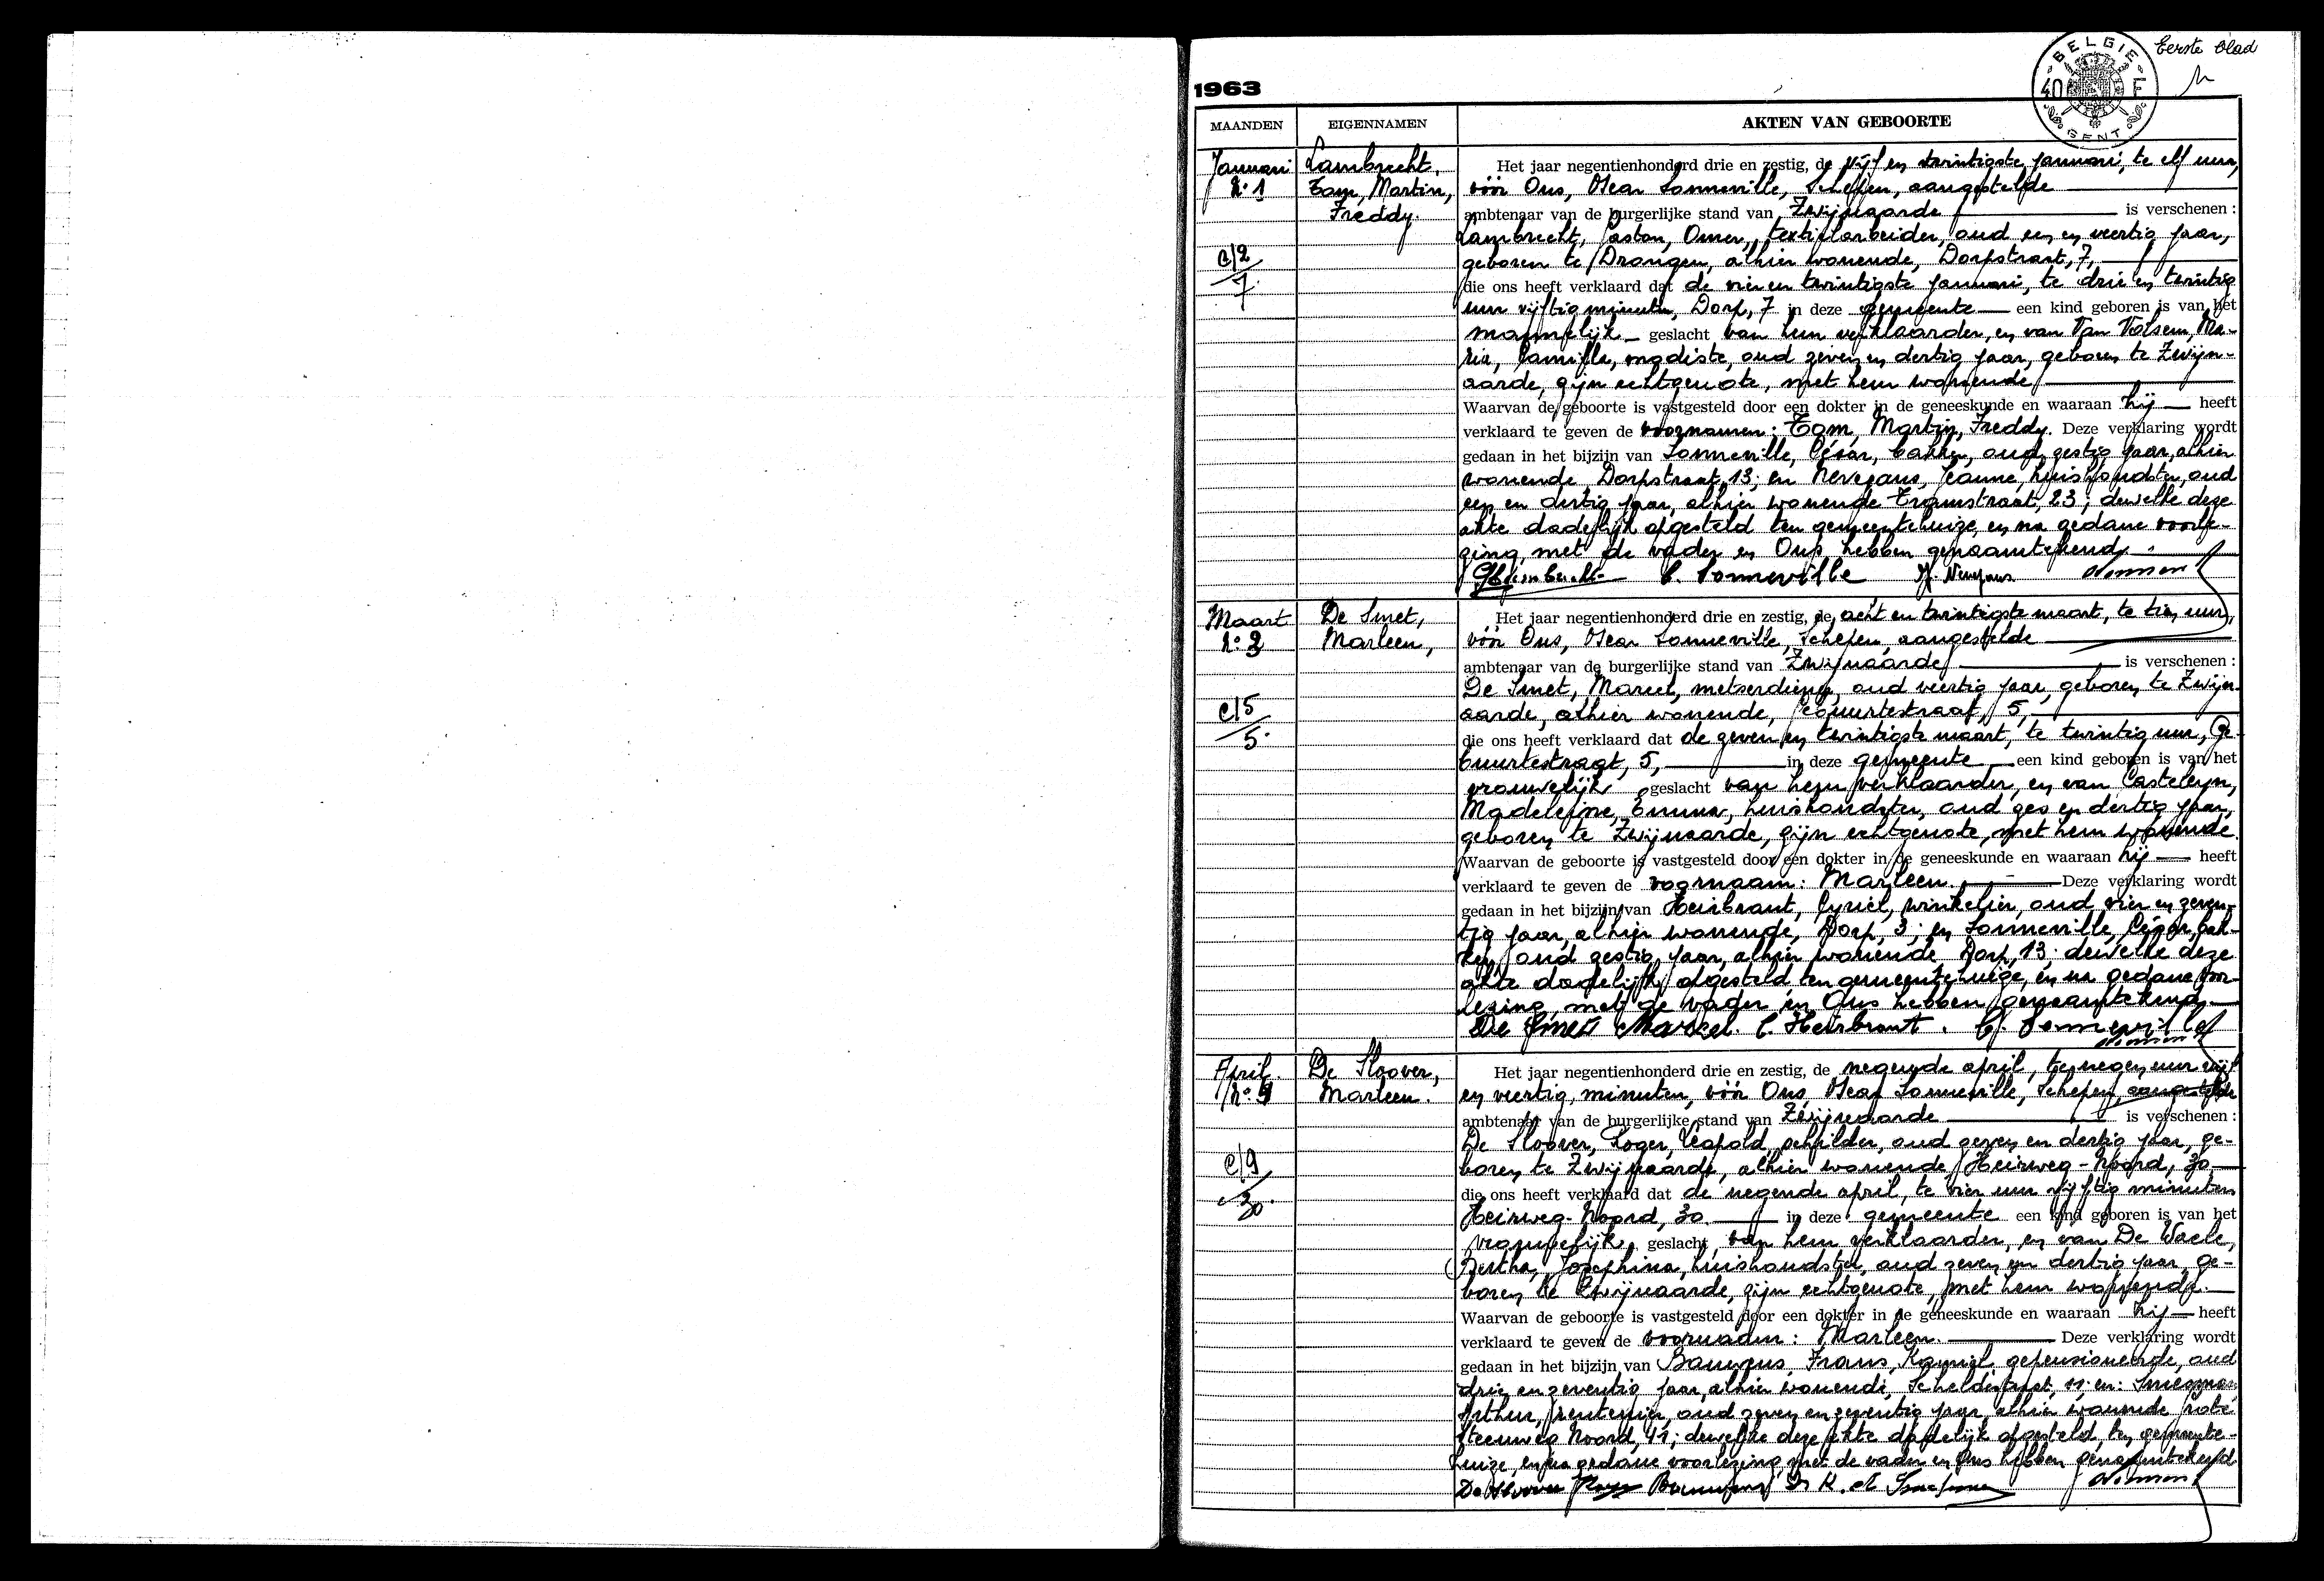 Eerste blad
BELGIE
40 F
GENT
1963
MAANDEN EIGENNAMEN AKTEN VAN GEBOORTE
Januari
N:1
Lambrecht,
Tom, Martin,
Freddy.
C/2
7.
Het jaar negentienhonderd drie en zestig, de vijf en twintigste januari, te elf uur,
vóór Ons, Oscar Sonneville, Schepen, aangestelde
ambtenaar van de burgerlijke stand van Zwijnaarde is verschenen :
Lambrecht, Gaston, Omer, textielarbeider, oud een en veertig jaar,
geboren te Drongen, alhier wonende, Dorpstraat, 7,
die ons heeft verklaard dat de vier en twintigste januari, te drie en twintig
uur vijftig minuten, Dorp, 7 in deze gemeente een kind geboren is van het
mannelijk geslacht van hem verklaarder, en van Van Volsem, Ma-
ria, Camilla, modiste, oud zeven en dertig jaar, geboren te Zwijn-
aarde, zijn echtgenote, met hem wonende
Waarvan de geboorte is vastgesteld door een dokter in de geneeskunde en waaraan hij heeft
verklaard te geven de voornamen: Tom, Martin, Freddy. Deze verklaring wordt
gedaan in het bijzijn van Sonneville, César, bakker, oud zestig jaar, alhier
wonende, Dorpstraat, 13; en Nevejans, Jeanne, huishoudster, oud
een en dertig jaar, alhier wonende Tramstraat, 23; dewelke deze
akte dadelijk opgesteld ten gemeentehuize, en na gedane voorle-
zing, met de vader en Ons hebben genaamtekend.
C. Sonneville
Maart
N:2
De Smet,
Marleen,
C/5
5.
Het jaar negentienhonderd drie en zestig, de acht en twintigste maart, te tien uur,
vóór Ons, Oscar Sonneville, Schepen, aangestelde
ambtenaar van de burgerlijke stand van Zwijnaarde is verschenen :
De Smet, Marcel, metserdiener, oud veertig jaar, geboren te Zwijn-
aarde, alhier wonende, Gebuurtestraat, 5,
die ons heeft verklaard dat de zeven en twintigste maart, te twintig uur, Ge-
buurtestraat, 5, in deze gemeente een kind geboren is van het
vrouwelijk geslacht van hem verklaarder, en van Casteleyn,
Madeleine, Emma, huishoudster, oud zes en dertig jaar,
geboren te Zwijnaarde, zijn echtgenote, met hem wonende.
Waarvan de geboorte is vastgesteld door een dokter in de geneeskunde en waaraan hij heeft
verklaard te geven de voornaam: Marleen. Deze verklaring wordt
gedaan in het bijzijn van Heirbrant, Cyriel, winkelier, oud vier en zeven-
tig jaar, alhier wonende, Dorp, 3; en Sonneville, César, bak-
ker, oud zestig jaar, alhier wonende Dorp, 13; dewelke deze
akte dadelijk opgesteld ten gemeentehuize, en na gedane voor-
lezing, met de vader en Ons hebben genaamtekend.
De Smet Marcel. C. Heirbrant. C. Sonneville
April.
N:
De Sloover,
Marleen.
C/9
30.
Het jaar negentienhonderd drie en zestig, de negende april, te negen uur vijf
en veertig minuten, vóór Ons, Oscar Sonneville, Schepen, aangestelde
ambtenaar van de burgerlijke stand van Zwijnaarde is verschenen :
De Sloover, Roger, Leopold, schilder, oud zeven en dertig jaar, ge-
boren te Zwijnaarde, alhier wonende, Heirweg-Noord, 30
die ons heeft verklaard dat de negende april, te vier uur vijftig minuten
Heirweg-Noord, 30. in deze gemeente een kind geboren is van het
vrouwelijk geslacht, van hem verklaarder, en van De Waele,
Bertha, Josephina, huishoudster, oud zeven en dertig jaar, ge-
boren te Zwijnaarde, zijn echtgenote, met hem wonende.
Waarvan de geboorte is vastgesteld door een dokter in de geneeskunde en waaraan hij heeft
verklaard te geven de voornaam: Marleen. Deze verklaring wordt
gedaan in het bijzijn van Bauwens, Frans, Kamiel, gepensioneerde, oud
drie en zeventig jaar, alhier wonende, Scheldestraat, 11; en:
Arthur, rentenier, oud zeven en zeventig jaar, alhier wonende
steenweg Noord, 41; dewelke deze akte dadelijk opgesteld ten gemeente-
huize, en na gedane voorlezing met de vader en Ons hebben genaamtekend
De Sloover